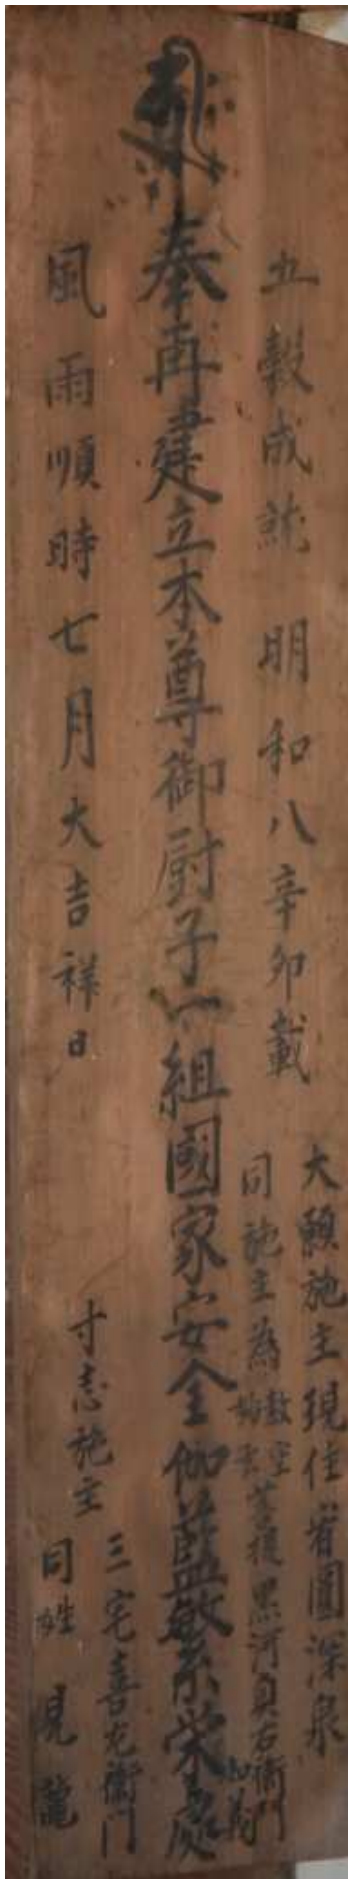 五穀成就 明和八辛卯載
大願施主現住省圓深泉
同施主為 菩提黒河貞右衛門
奉再建立本尊御厨子一組國家安全伽藍繁栄處
風雨順時七月大吉祥日
寸志施主
三宅喜左衛門
同姓